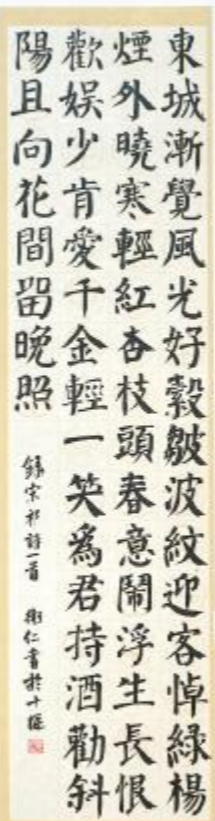 東城漸覺風光好縠皺波紋迎客悼緑楊
煙外曉寒輕紅杏枝頭春意鬧浮生長恨
歡娱少肯愛千金輕一笑為君持酒勸斜
陽且向花間畱晚照
錄宋祁詩一首 衡仁書於十堰